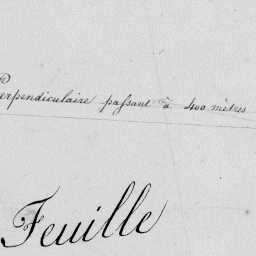 Perpendiculaire passant à 400 mètres
Feuille